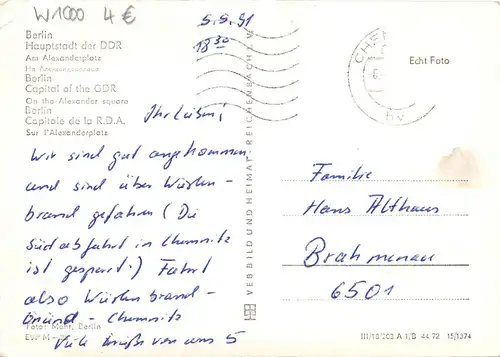 W1000 4€
5.5.91
18³⁰
Berlin
Hauptstadt der DDR
Am Alexanderplatz
На Александерплац
Berlin
Capital of the GDR
On the Alexander square
Berlin
Capitale de la R.D.A.
Sur l'Alexanderplatz
Ihr Lieben!
Wir sind gut angekommen
und sind über Wüsten-
brand gefahren (Die
Südabfahrt in Chemnitz
ist gesperrt!) Fahrt
also Wüstenbrand -
Grüna - Chemnitz
Viele Grüße von uns 5
Foto: Mohr, Berlin
EVP M
VEB BILD UND HEIMAT · REICHENBACH I. V.
CHE
by
Echt Foto
Familie
Hans Althaus
Brahmenau
6501
III/18/203 A 1/B 44/72 15/1374